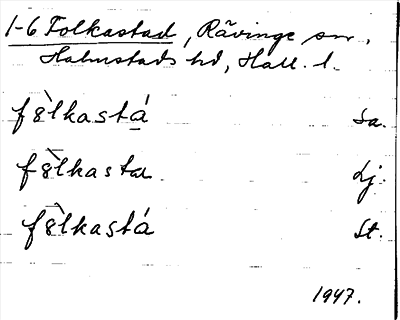 1-6 Folkastad, Rävinge sn.,
Halmstads hd, Hall. l.
fòlkastá Sa.
fòlkasta Lj.
fòlkastá St.
1947.